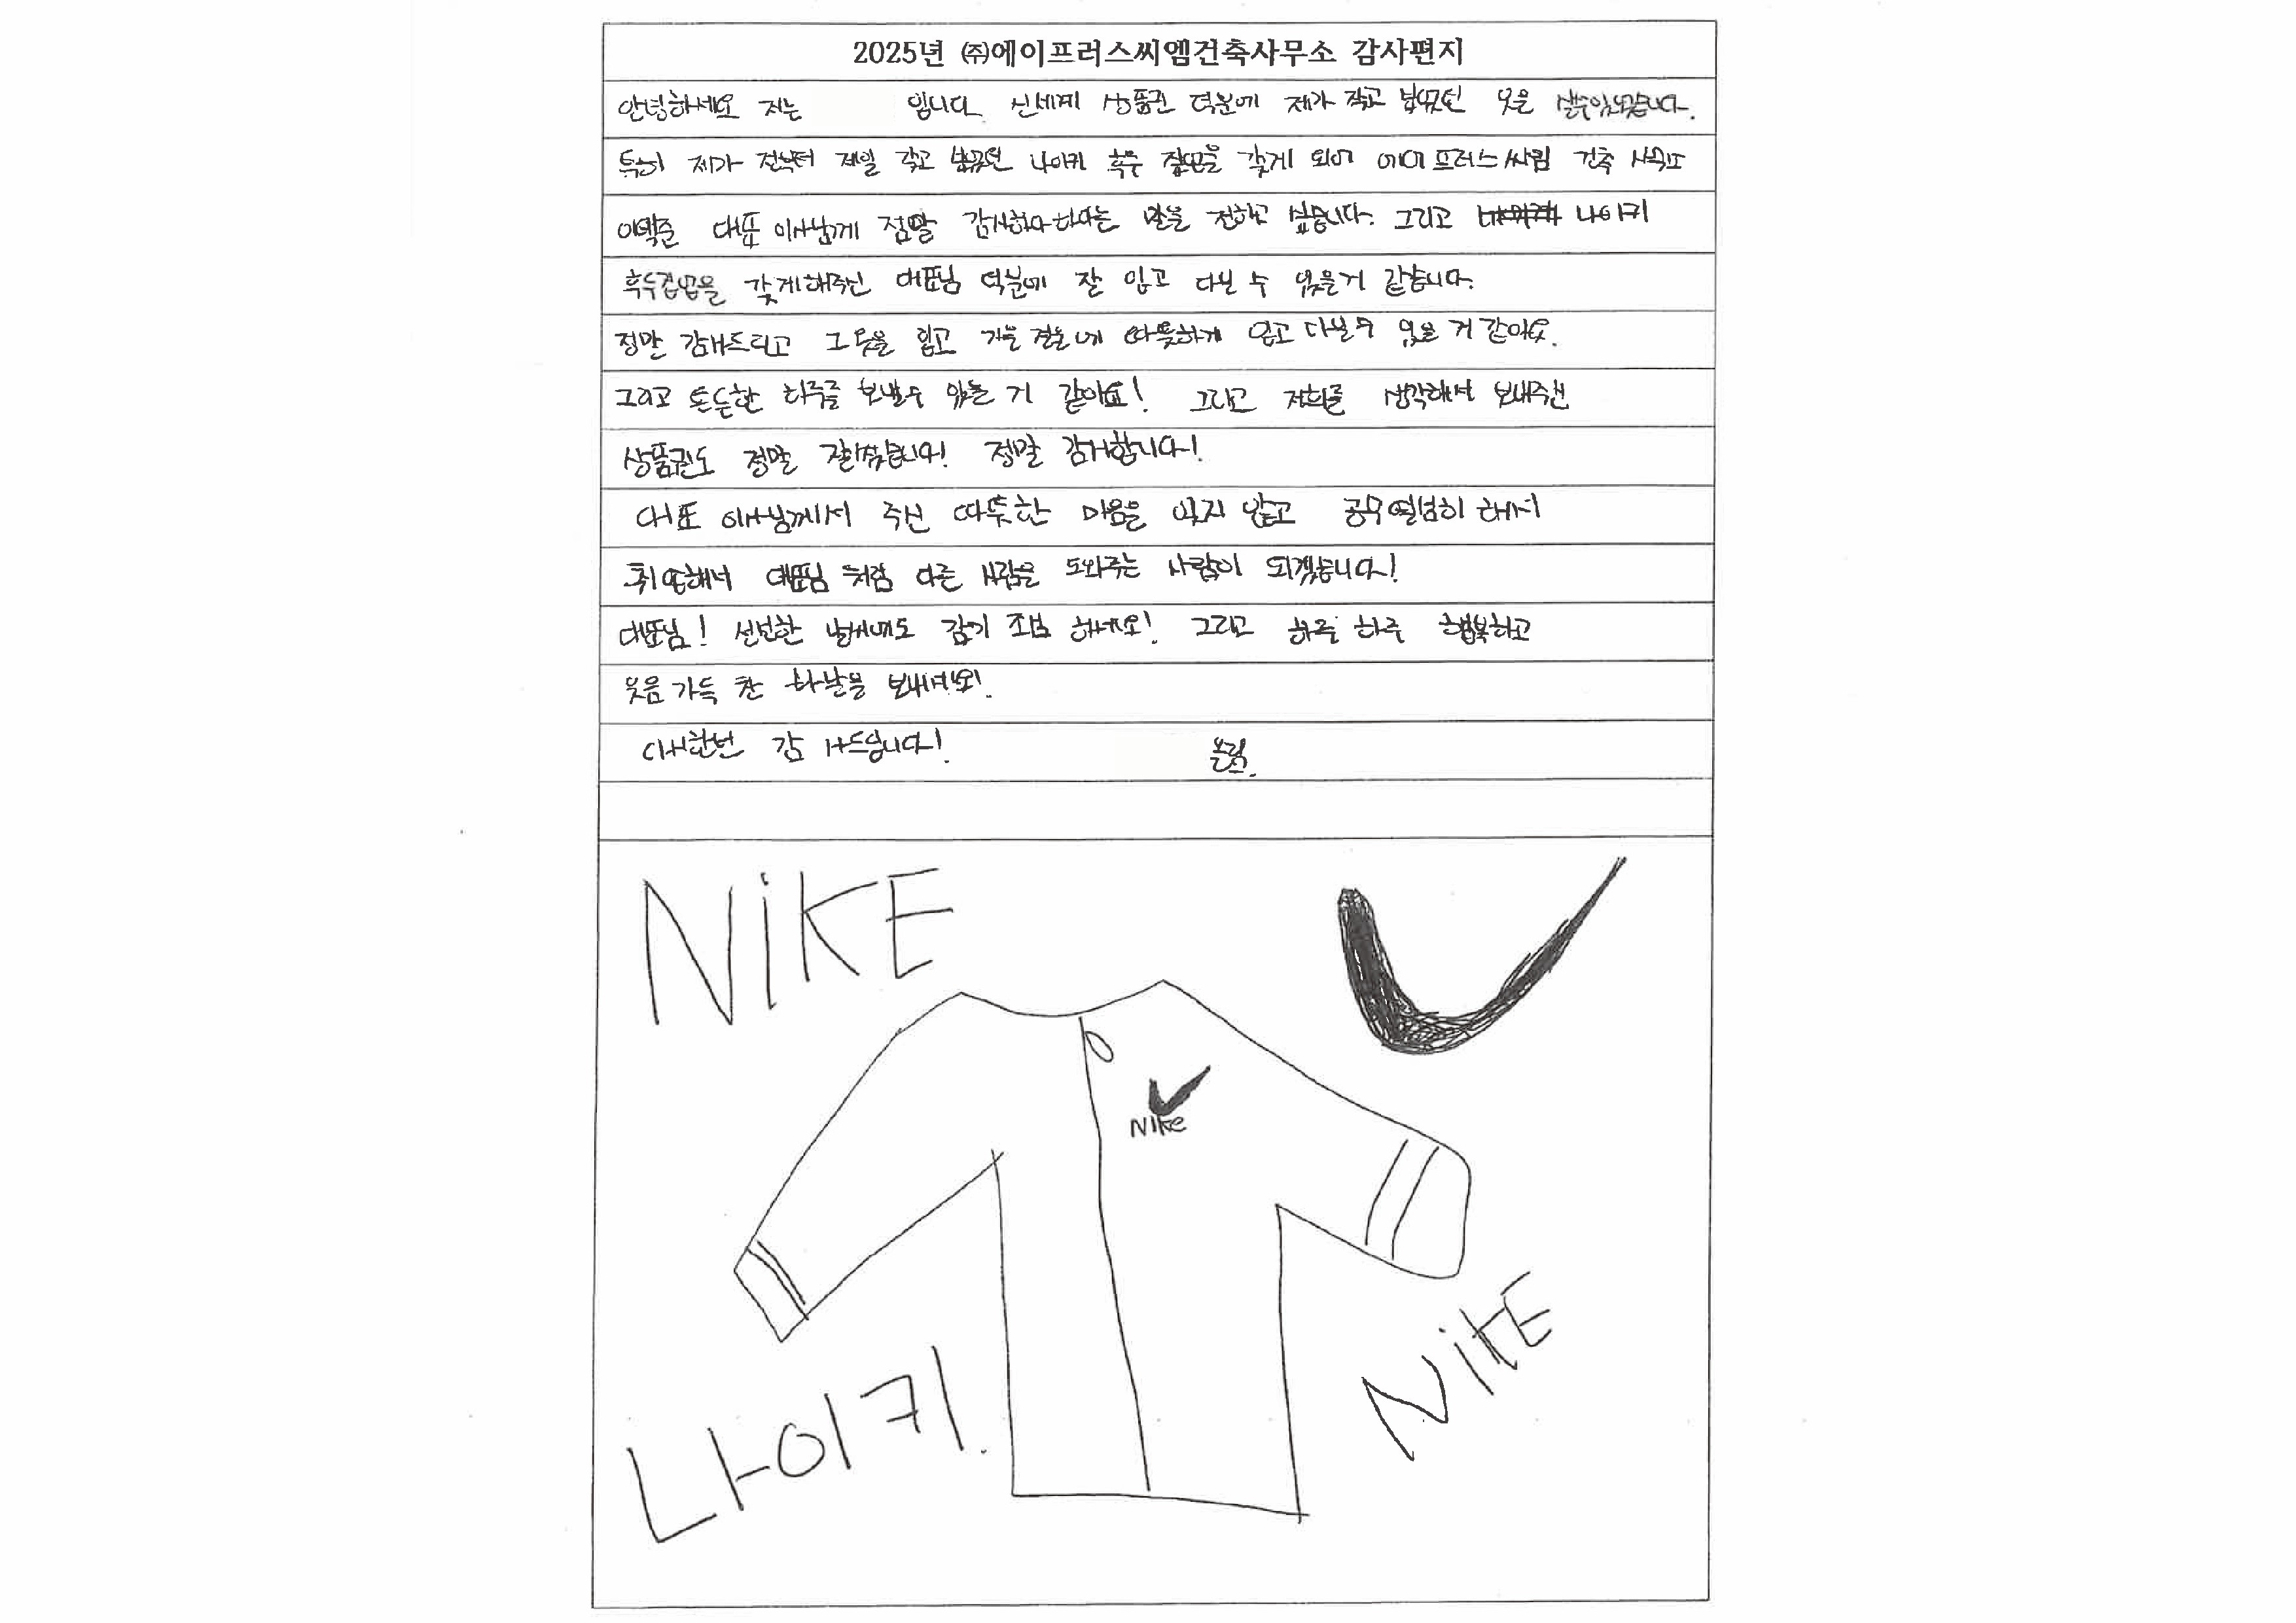 2025년 ㈜에이프러스씨엠건축사무소 감사편지
안녕하세요 저는 입니다. 신세계 상품권 덕분에 제가 갖고 싶었던 옷을 살수있었습니다.
특히 제가 전부터 제일 갖고 싶었던 나이키 후두 집업을 갖게 되어 에이프러스씨엠 건축 사무소
대표 이사님께 정말 감사하다는 말을 전하고 싶습니다. 그리고 나이키
후두집업을 갖게해주신 대표님 덕분에 잘 입고 다닐 수 있을거 같습니다.
정말 감사드리고 그 옷을 입고 가을 겨울에 따뜻하게 입고 다닐수 있을 거 같아요.
그리고 든든한 하루를 보낼수 있는 거 같아요! 그리고 저희를 생각해서 보내주신
상품권도 정말 잘썼습니다! 정말 감사합니다!
대표 이사님께서 주신 따뜻한 마음을 잊지 않고 공부 열심히 해서
취업해서 대표님 처럼 다른 사람을 도와주는 사람이 되겠습니다!
대표님! 선선한 날씨에도 감기 조심 하세요! 그리고 하루 하루 행복하고
웃음 가득 찬 하날을 보내세요!
다시한번 감사드립니다! 올림.
NiKE
Nike
NiKE
나이키.